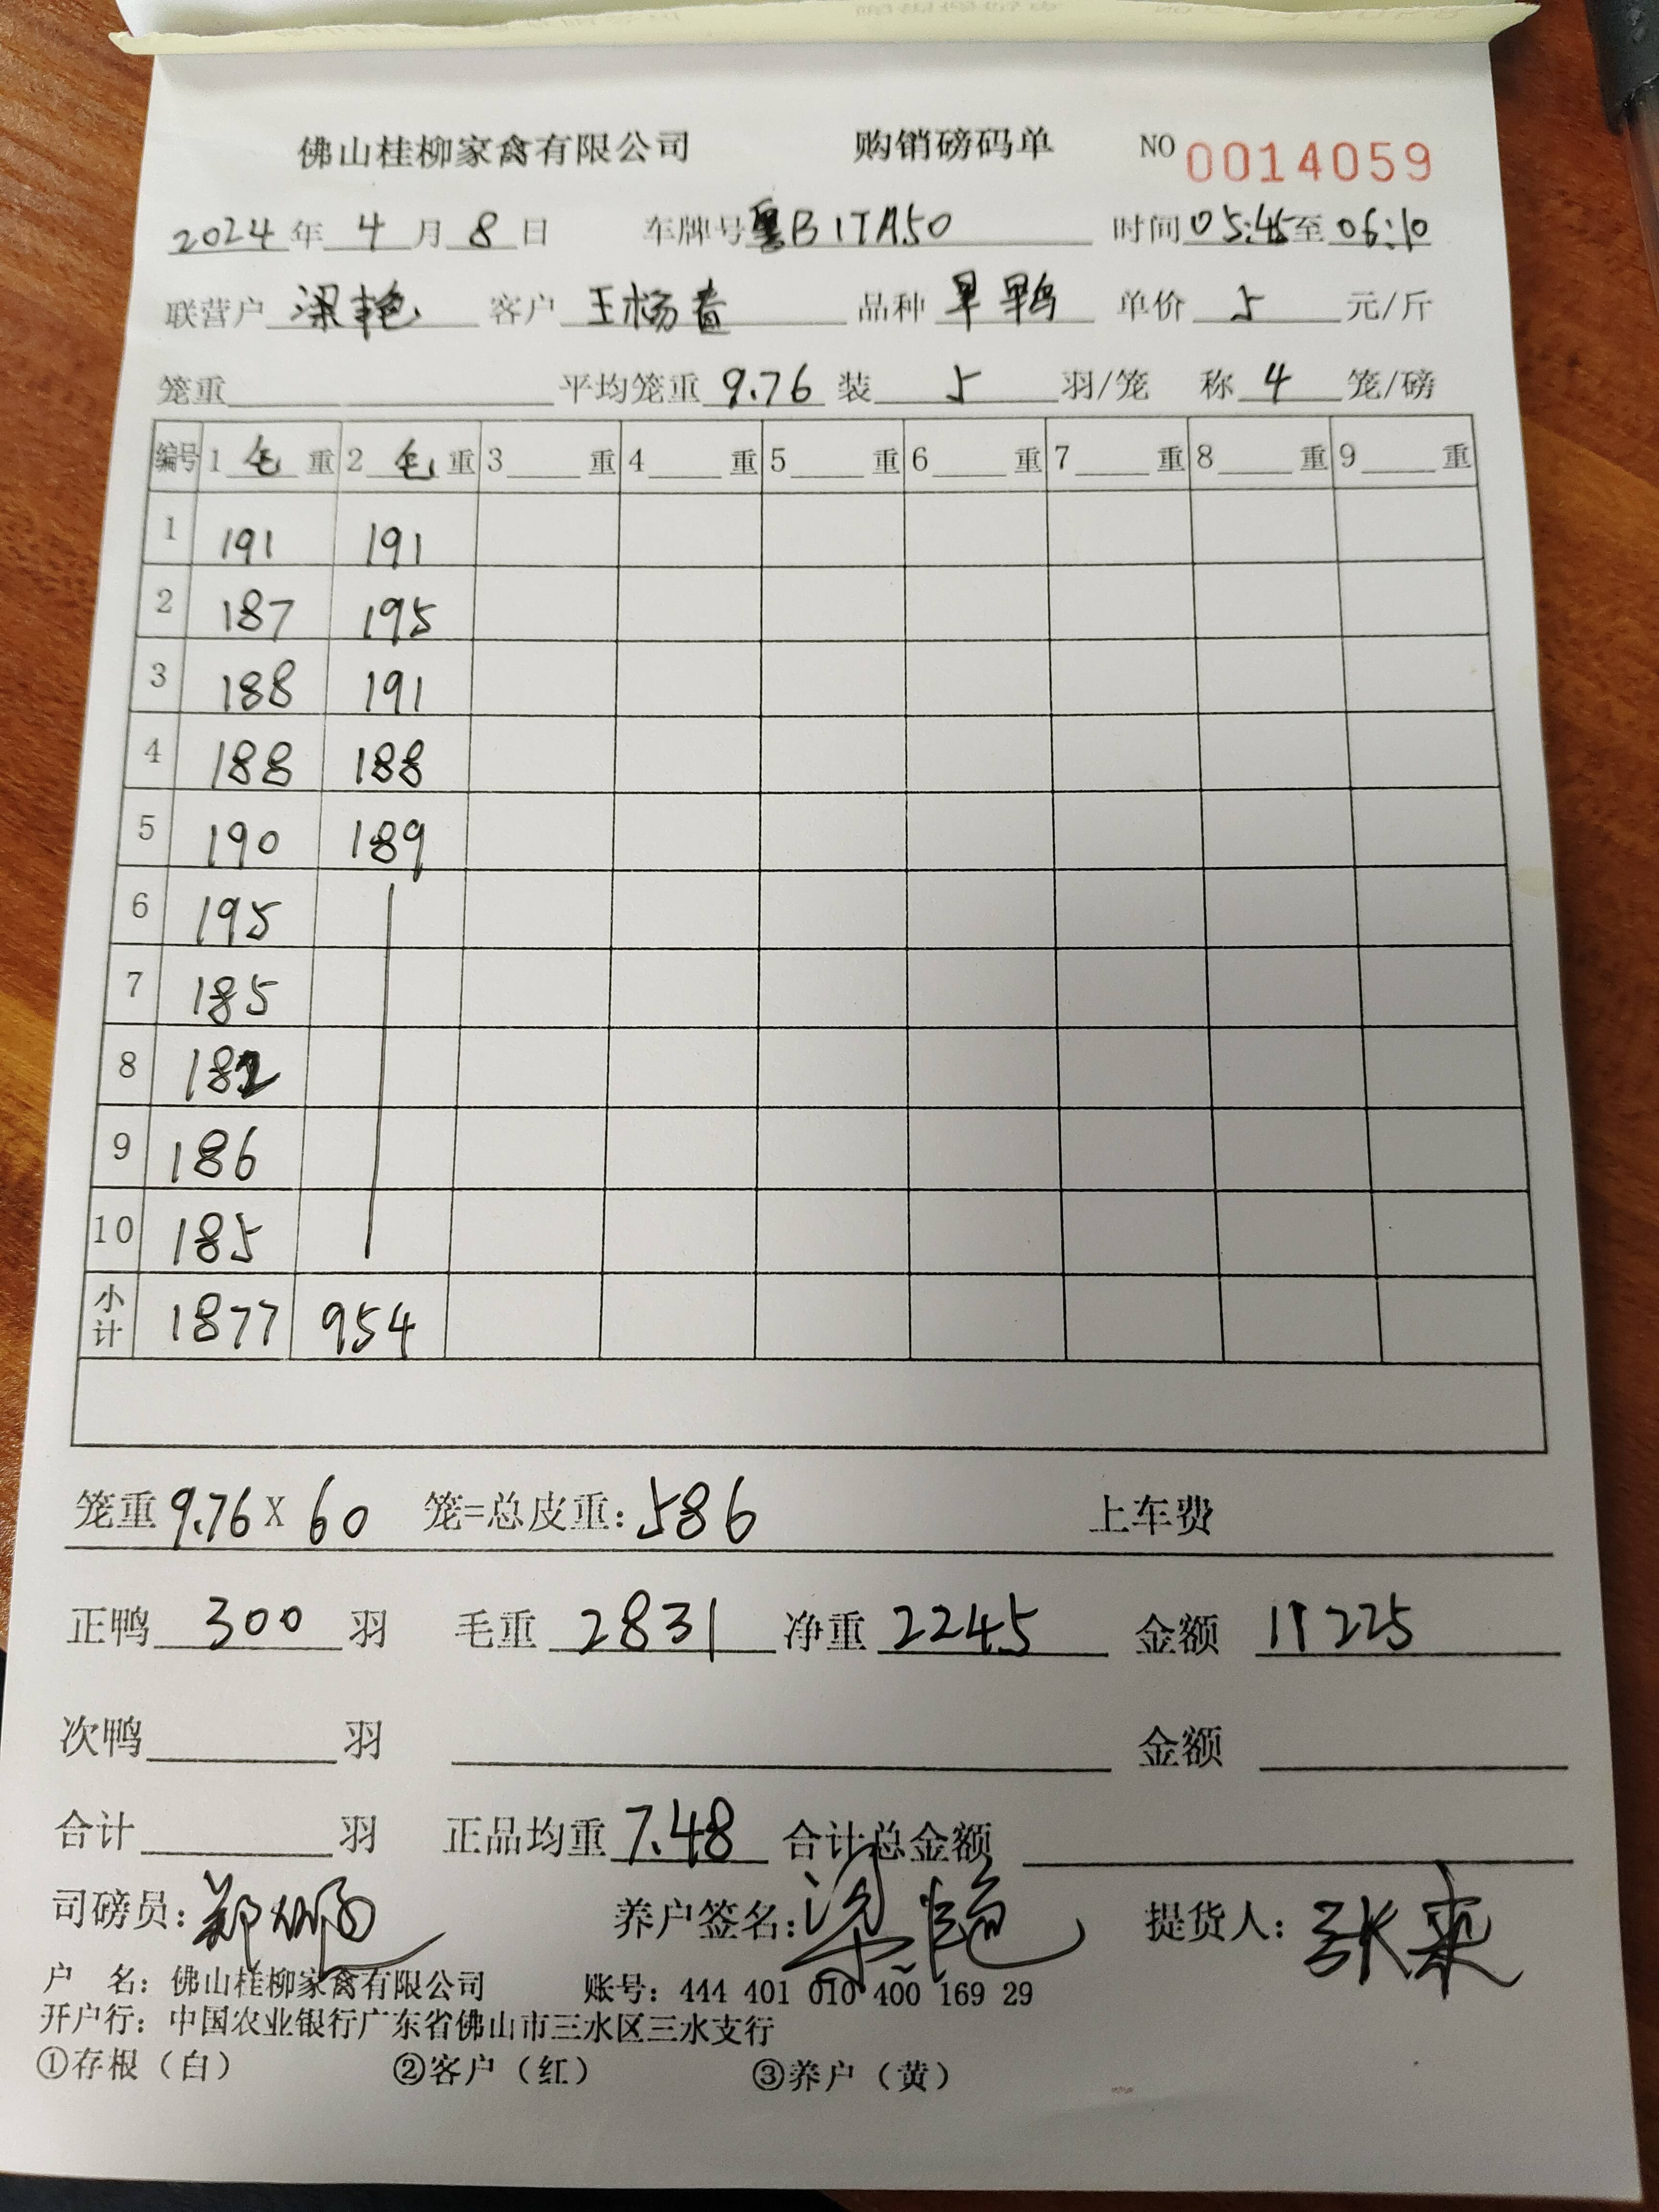 佛山桂柳家禽有限公司 购销磅码单 NO 0014059
2024年4月8日 车牌号粤B1TA50 时间05:45至06:10
联营户 梁艳 客户 王杨 品种 旱鸭 单价 5 元/斤
笼重 平均笼重 9.76 装 5 羽/笼 称 4 笼/磅
编号 1 毛 重 2 毛 重 3 重 4 重 5 重 6 重 7 重 8 重 9 重
1 191 191
2 187 195
3 188 191
4 188 188
5 190 189
6 195
7 185
8 182
9 186
10 185
小计 1877 954
笼重 9.76 X 60 笼=总皮重: 586 上车费
正鸭 300 羽 毛重 2831 净重 2245 金额 11225
次鸭 羽 金额
合计 羽 正品均重 7.48 合计总金额
司磅员: 郑 养户签名: 梁艳 提货人: 张
户 名: 佛山桂柳家禽有限公司 账号: 444 401 010 400 169 29
开户行: 中国农业银行广东省佛山市三水区三水支行
①存根（白） ②客户（红） ③养户（黄）